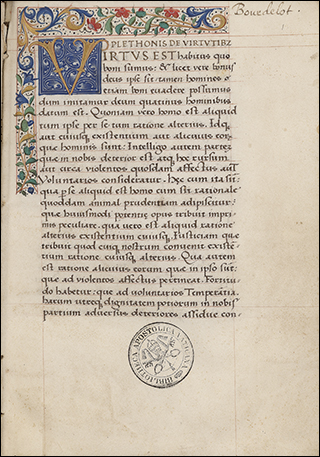 Bourdelot.
1
PLETHONIS DE VIRTUTIBZ
VIRTUS EST habitus quo
boni sumus: & licet vere bonus
deus ipse sit tamen homines
etiam boni evadere possumus
dum imitamur deum quatinus hominibus
datum est. Quoniam vero homo est aliquid
tum ipse per se tum ratione alterius. Idq,
aut cuiusq, existentium aut alicuius cor
que hominis sunt: Intelligo autem partem
quæ in nobis deterior est atq, hec rursum
aut circa violentos quosdam affectus aut
Voluntarios consideratur. hęc cum ita sit
qua p se aliquid est homo cum sit rationale
quoddam animal prudentiam adipiscitur:
que huiusmodi potentię opus tribuit impri
mis peculiare. qua vero est aliquid ratione
alterius existentium cuiusq, Iusticiam que
tribuit quod cuiq nostrum convenit existē
tium ratione cuiusq, alterius. Qua autem
est ratione alicuius eorum que in ipso sūt:
que ad violentos affectus pertinent. Fortitu
do habetur: que ad voluntarios Temperātia.
harum utreq, dignitatem potiorum in nobis
partium adversus deteriores assidue con-
BIBLIOTHECA APOSTOLICA VATICANA